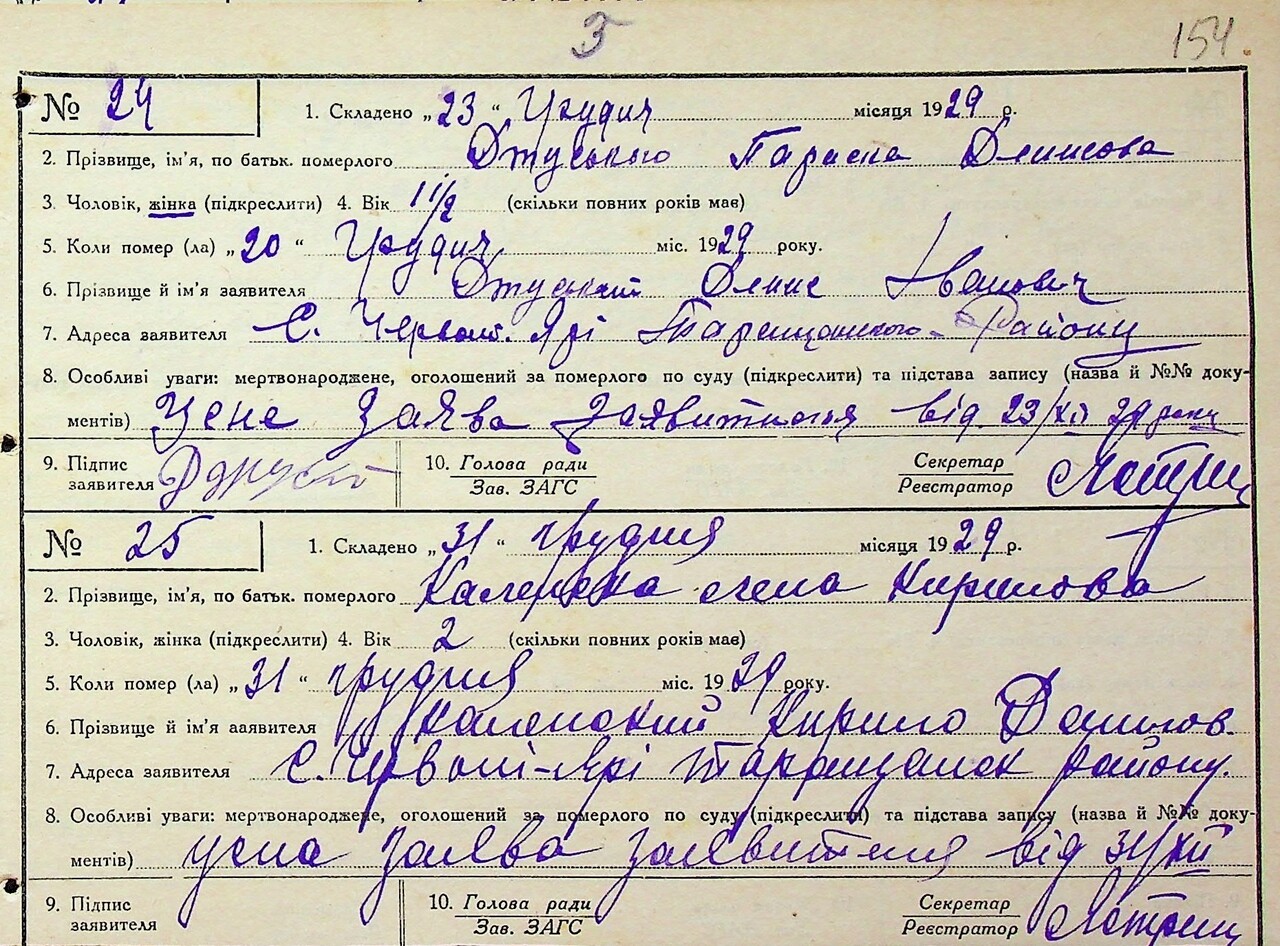 3
154
№ 24 1. Складено „23“ Грудня місяця 1929 р.
2. Прізвище, ім'я, по батьк. померлого Параска Денисова
3. Чоловік, жінка (підкреслити) 4. Вік 1 1/2 (скільки повних років має)
5. Коли помер (ла) „20“ Грудня міс. 1929 року.
6. Прізвище й ім'я заявителя Денис Іванович
7. Адреса заявителя С. Червон. Ярі Таращанського Району
8. Особливі уваги: мертвонароджене, оголошений за померлого по суду (підкреслити) та підстава запису (назва й №№ доку-
ментів) Усне Заява Заявителя від 23/XII 29 року
9. Підпис 10. Голова ради Секретар
заявителя Зав. ЗАГС Реєстратор
№ 25 1. Складено „31“ грудня місяця 1929 р.
2. Прізвище, ім'я, по батьк. померлого Каленска Олена Кирилова
3. Чоловік, жінка (підкреслити) 4. Вік 2 (скільки повних років має)
5. Коли помер (ла) „31“ грудня міс. 1929 року.
6. Прізвище й ім'я заявителя Каленский Кирило Данилов.
7. Адреса заявителя С. Ярі Таращанск району.
8. Особливі уваги: мертвонароджене, оголошений за померлого по суду (підкреслити) та підстава запису (назва й №№ доку-
ментів) усна Заява Заявителя від 31/XII
9. Підпис 10. Голова ради Секретар
заявителя Зав. ЗАГС Реєстратор